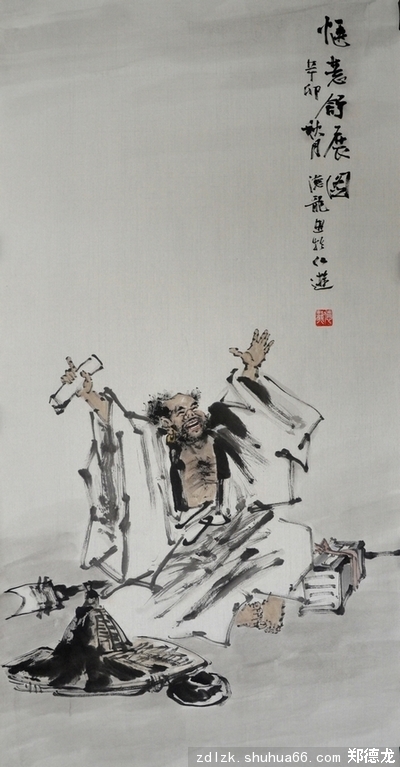 愜意舒展圖
辛卯秋月 德龍画於仙遊
zdlzk.shuhua66.com 郑德龙